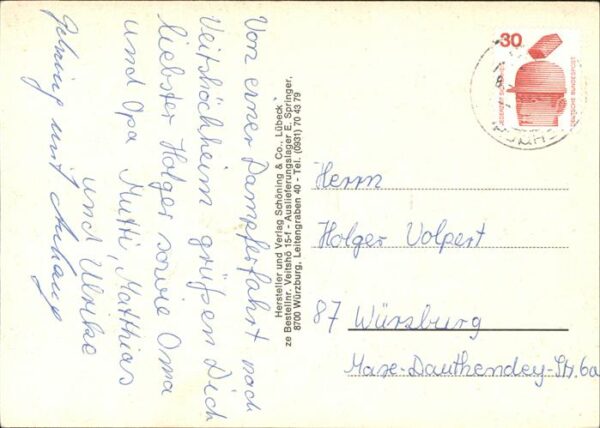 Von einer Dampferfahrt nach
Veitshöchheim grüßen Dich
liebster Holger sowie Oma
und Opa Mutti, Matthias
und Ulrike
mit Anhang
Hersteller und Verlag Schöning & Co., Lübeck
ze Bestellnr. Veitshö 15-f - Auslieferungslager E. Springer,
8700 Würzburg, Leitengraben 40 - Tel. (0931) 70 43 79
30
DEUTSCHE BUNDESPOST
Herrn
Holger Volpert
87 Würzburg
Max-Dauthendey-Str. 6a